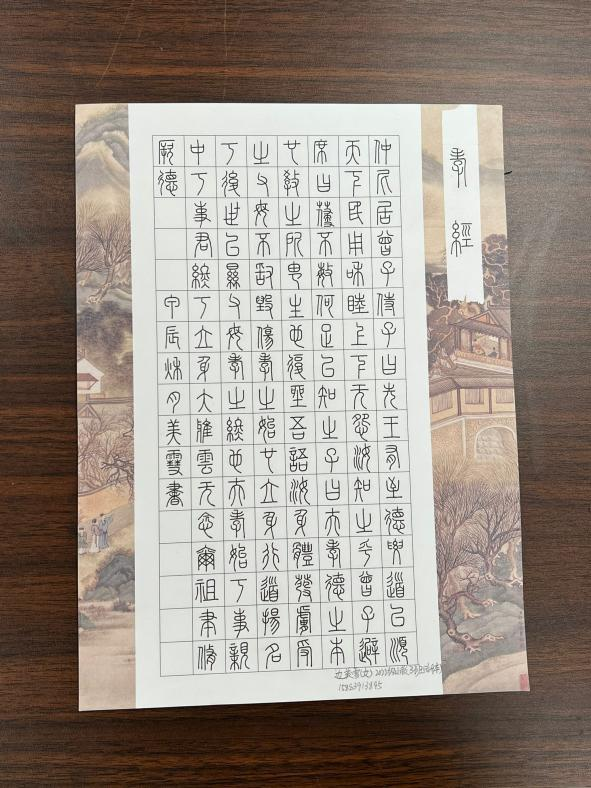 孝經
仲尼居曾子侍子曰先王有至德要道以順
天下民用和睦上下无怨汝知之乎曾子避
席曰參不敏何足以知之子曰夫孝德之本
也教之所由生也復坐吾語汝身體髮膚受
之父母不敢毀傷孝之始也立身行道揚名
于後世以顯父母孝之終也夫孝始于事親
中于事君終于立身大雅雲无念爾祖聿脩
厥德 甲辰秋月美雪書
边美雪(女)
15863913845